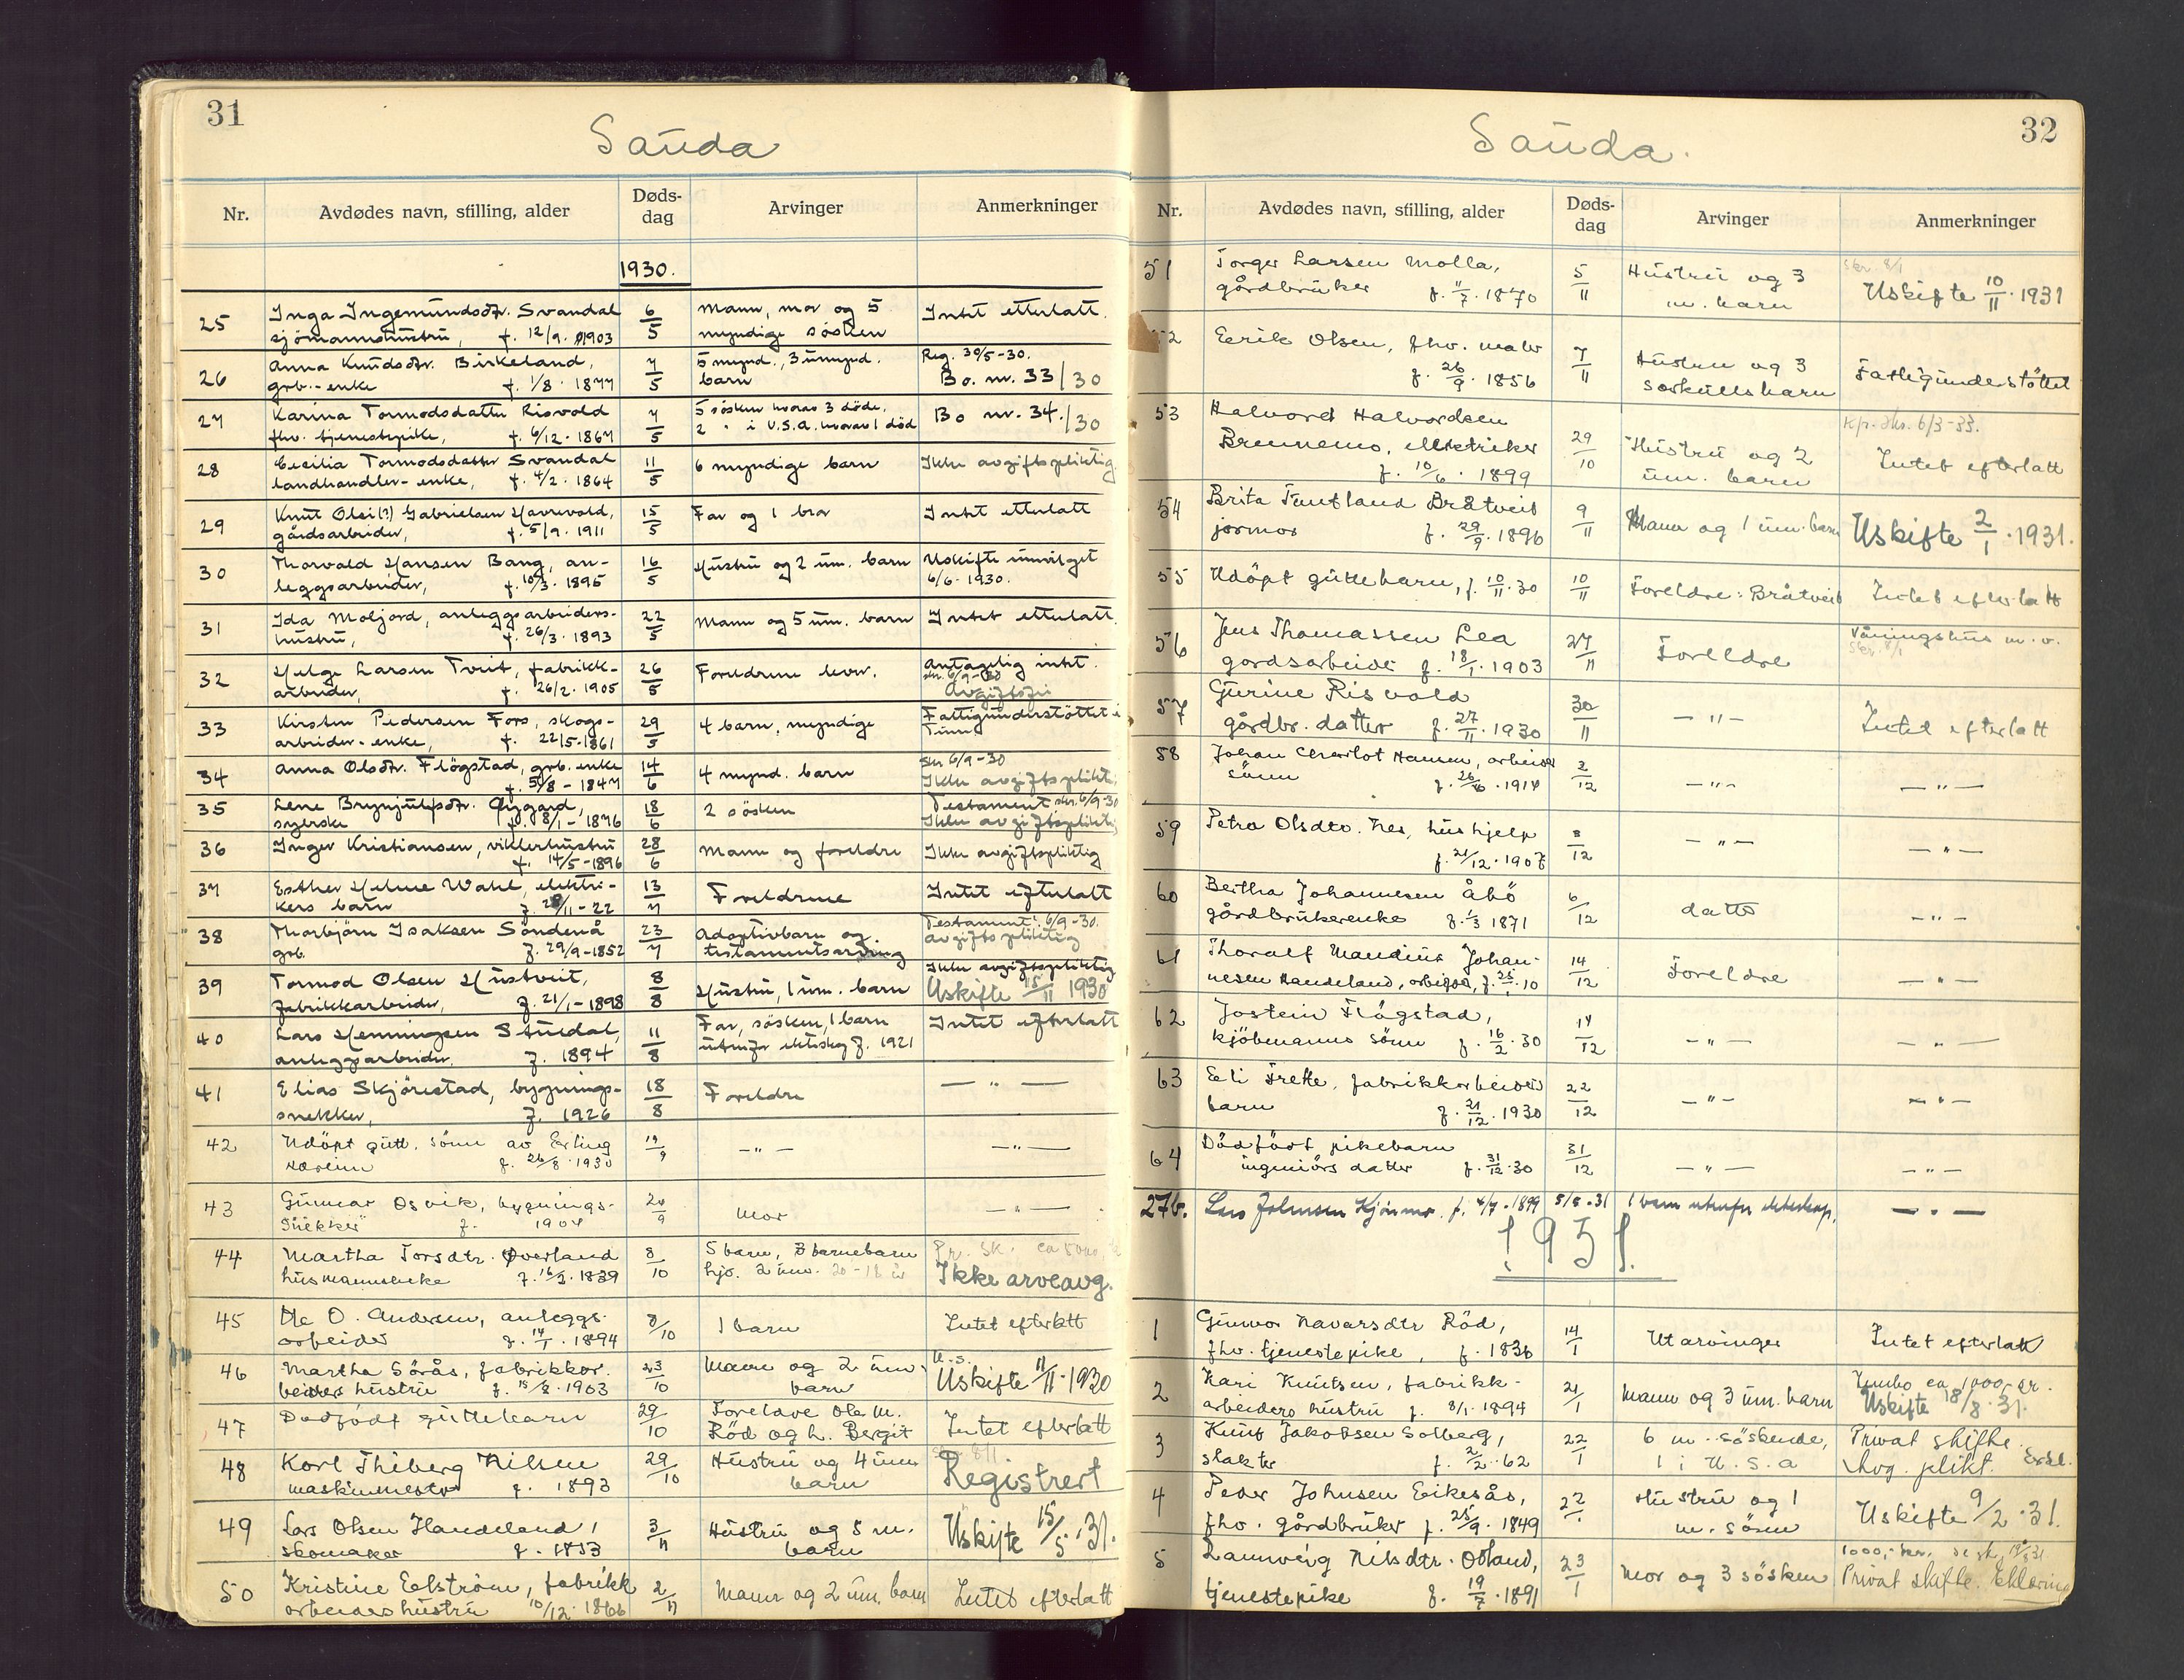 31
Sauda
Nr. Avdødes navn, stilling, alder Døds-dag Arvinger Anmerkninger
1930.
25 Inga Ingemundsdtr. Svandal 6/5 Mann, mor og 5 Intet etterlatt.
sjömannshustru, f. 12/9. 1903 myndige søsken
26 Anna Knudsdtr. Birkeland, 7/5 5 mynd., 3 umynd. Reg. 30/5-30.
grb.-enke f. 1/8. 1877 barn Bo. nr. 33/30
27 Karina Tormodsdatter Risvold 7/5 5 søsken hvorav 3 døde, Bo nr. 34./30
fhv. tjenestepike, f. 6/12. 1867 2 " i U.S.A. hvorav 1 død
28 Cecilia Tormodsdatter Svandal 11/5 6 myndige barn Ikke avgiftspliktig
landhandler-enke, f. 4/2. 1864
29 Knut Olai(?) Gabrielsen 15/5 Far og 1 bror Intet etterlatt
gårdsarbeider, f. 5/9. 1911
30 Thorvald Hansen Bang, an- 16/5 Hustru og 2 um. barn Uskifte innvilget
leggsarbeider, f. 10/3. 1895 6/6. 1930.
31 Ida Moljord, anleggsarbeiders- 22/5 Mann og 5 um. barn Intet etterlatt.
hustru, f. 26/3. 1893
32 Helge Larsen Tveit, fabrikk- 26/5 Foreldrene lever. Antagelig intet.
arbeider, f. 26/2. 1905 skr. 6/9-30
Avgiftsfri
33 Kirsten Pedersen Fors, skogs- 29/5 4 barn, myndige Fattigunderstöttet i
arbeider-enke, f. 22/5-1861
34 Anna Olsdtr. Flögstad, grb. enke 14/6 4 mynd. barn skr 6/9-30
f. 5/8-1847 Ikke avgiftsplikti
35 Lene Brynjulfsdtr. 18/6 2 søsken Testament skr. 6/9-30
syerske f. 8/1-1876 Ikke avgiftspliktig
36 Inger Kristiansen, viklerhustru 28/6 Mann og foreldre Ikke avgiftspliktig
f. 14/5-1896
37 Esther Helene Wahl, elektri- 13/7 Foreldrene Intet efterlatt
kers barn f. 28/11-22
38 Thorbjörn Isaksen Söndenå 23/7 Adoptivbarn og Testament 6/9-30.
grb. f. 29/9-1852 testamentsarving avgiftspliktig
39 Tormod Olsen Hustveit, 8/8 Hustru, 1 um. barn Ikke avgiftspliktig
fabrikkarbeider, f. 21/1-1898 Uskifte 15/11 1930
40 Lars Henningsen Stuedal, 11/8 Far, søsken, 1 barn Intet efterlatt
anleggsarbeider, f. 1894 utenfor ektesk. f. 1921
41 Elias Skjörestad, bygnings- 18/8 Foreldre — " —
snekker, f. 1926
42 Udöpt gutt. sönn av Erling 19/9 — " — — " —
Næreim f. 26/8. 1930
43 Gunnar Osvik, bygnings- 20/9 Mor — " —
snekker f. 1904
44 Martha Torsdtr. Øverland 8/10 5 barn, 7 barnebarn Pr. sk. ca 5000,
husmannsenke f. 16/3. 1839 hjv. 2 um. 20-18 år Ikke arveavg.
45 Ole O. Andersen, anleggs- 8/10 1 barn Intet efterlatt
arbeider f. 14/1. 1894
46 Martha Sörås, fabrikkar- 23/10 Mann og 2 um. U.s.
beiders hustru f. 15/8. 1903 barn Uskifte 11/11. 1930
47 Dødfödt guttebarn 29/10 Foreldre Ole M. Intet efterlatt
Röd og h. Bergit
48 Karl Thiberg Nilsen 29/10 Hustru og 4 um skr. 8/1.
maskinmester f. 1893 barn Registrert
49 Lars Olsen Handeland, 3/11 Hustru og 5 m. Uskifte 15/5. 31.
skomaker f. 1853 barn
50 Kristine Eelström, fabrikk 2/11 Mann og 2 um. barn Intet efterlatt
arbeiders hustru 10/12. 1866
32
Sauda.
Nr. Avdødes navn, stilling, alder Døds-dag Arvinger Anmerkninger
51 Torger Larsen Molla, 5/11 Hustru og 3 skr. 8/1
gårdbruker f. 11/7. 1870 m. barn Uskifte 10/11. 1931
52 Eerik Olsen, fhv. maler 7/11 Hustru og 3 Fattigunderstöttet
f. 26/9. 1856 særkullsbarn
53 Halvord Halvordsen Kp. skr. 6/3-33.
Brennemo, elektriker 29/10 Hustru og 2 Intet efterlatt
f. 10/6. 1899 um. barn
54 Brita Tentland Bråtveit 9/11 Mann og 1 um. barn Uskifte 2/1. 1931.
jormor f. 29/9. 1896
55 Udöpt guttebarn, f. 10/11. 30 10/11 Foreldre: Bråtveit Intet efterlatt
56 Jens Thomassen Lea 27/11 Foreldre Våningshus m. v.
gårdsarbeider f. 18/1. 1903 skr. 8/1
57 Gurine Risvold 30/11 — " — Intet efterlatt
gårdbr. datter f. 27/11. 1930
58 Johan Charlot Hansen, arbeider 2/12 — " — — " —
sönn f. 26/6. 1914
59 Petra Olsdtr. Nes, hushjelp 3/12 — " — — " —
f. 21/12. 1907
60 Bertha Johannesen Åbö 6/12 datter — " —
gårdbrukerenke f. 1/3 1871
61 Thoralf Mandius Johan- 14/12 Foreldre — " —
nesen Handeland, arbeider, f. 25/1. 10
62 Jostein Flögstad, 14/12 — " — — " —
kjöbmanns sönn f. 16/2. 30
63 Eli Trette, fabrikkarbeiders 22/12 — " — — " —
barn f. 21/12. 1930
64 Dödfödt pikebarn 31/12 — " — — " —
ingeniörs datter f. 31/12. 30
27b. Lars Johnsen f. 4/7. 1899 5/5-31 1 barn utenfor ekteskap. — " —
1931.
1 Gunvor Navarsdtr Röd, 14/1 Utarvinger Intet efterlatt
fhv. tjenestepike, f. 1836
2 Kari Knutsen, fabrikk- 21/1 Mann og 3 um. barn Innbo ca 1000,- kr.
arbeiders hustru f. 8/1. 1894 Uskifte 18/8. 31.
3 Knut Jakobsen Solberg, 22/1 6 m. söskende, Privat skifte.
slakter f. 2/2. 62 1 i U.S.A Avg. plikt. Erkl.
4 Peder Johnsen Eikesås, 22/1 Hustru og 1 Uskifte 9/2. 31.
fhv. gårdbruker f. 25/9. 1849 m. sönn
5 Rannveig Nilsdtr. Öbland, 23/1 Mor og 3 søsken 1000,- kr.
tjenestepike f. 19/7. 1891 Privat skifte. Erklæring